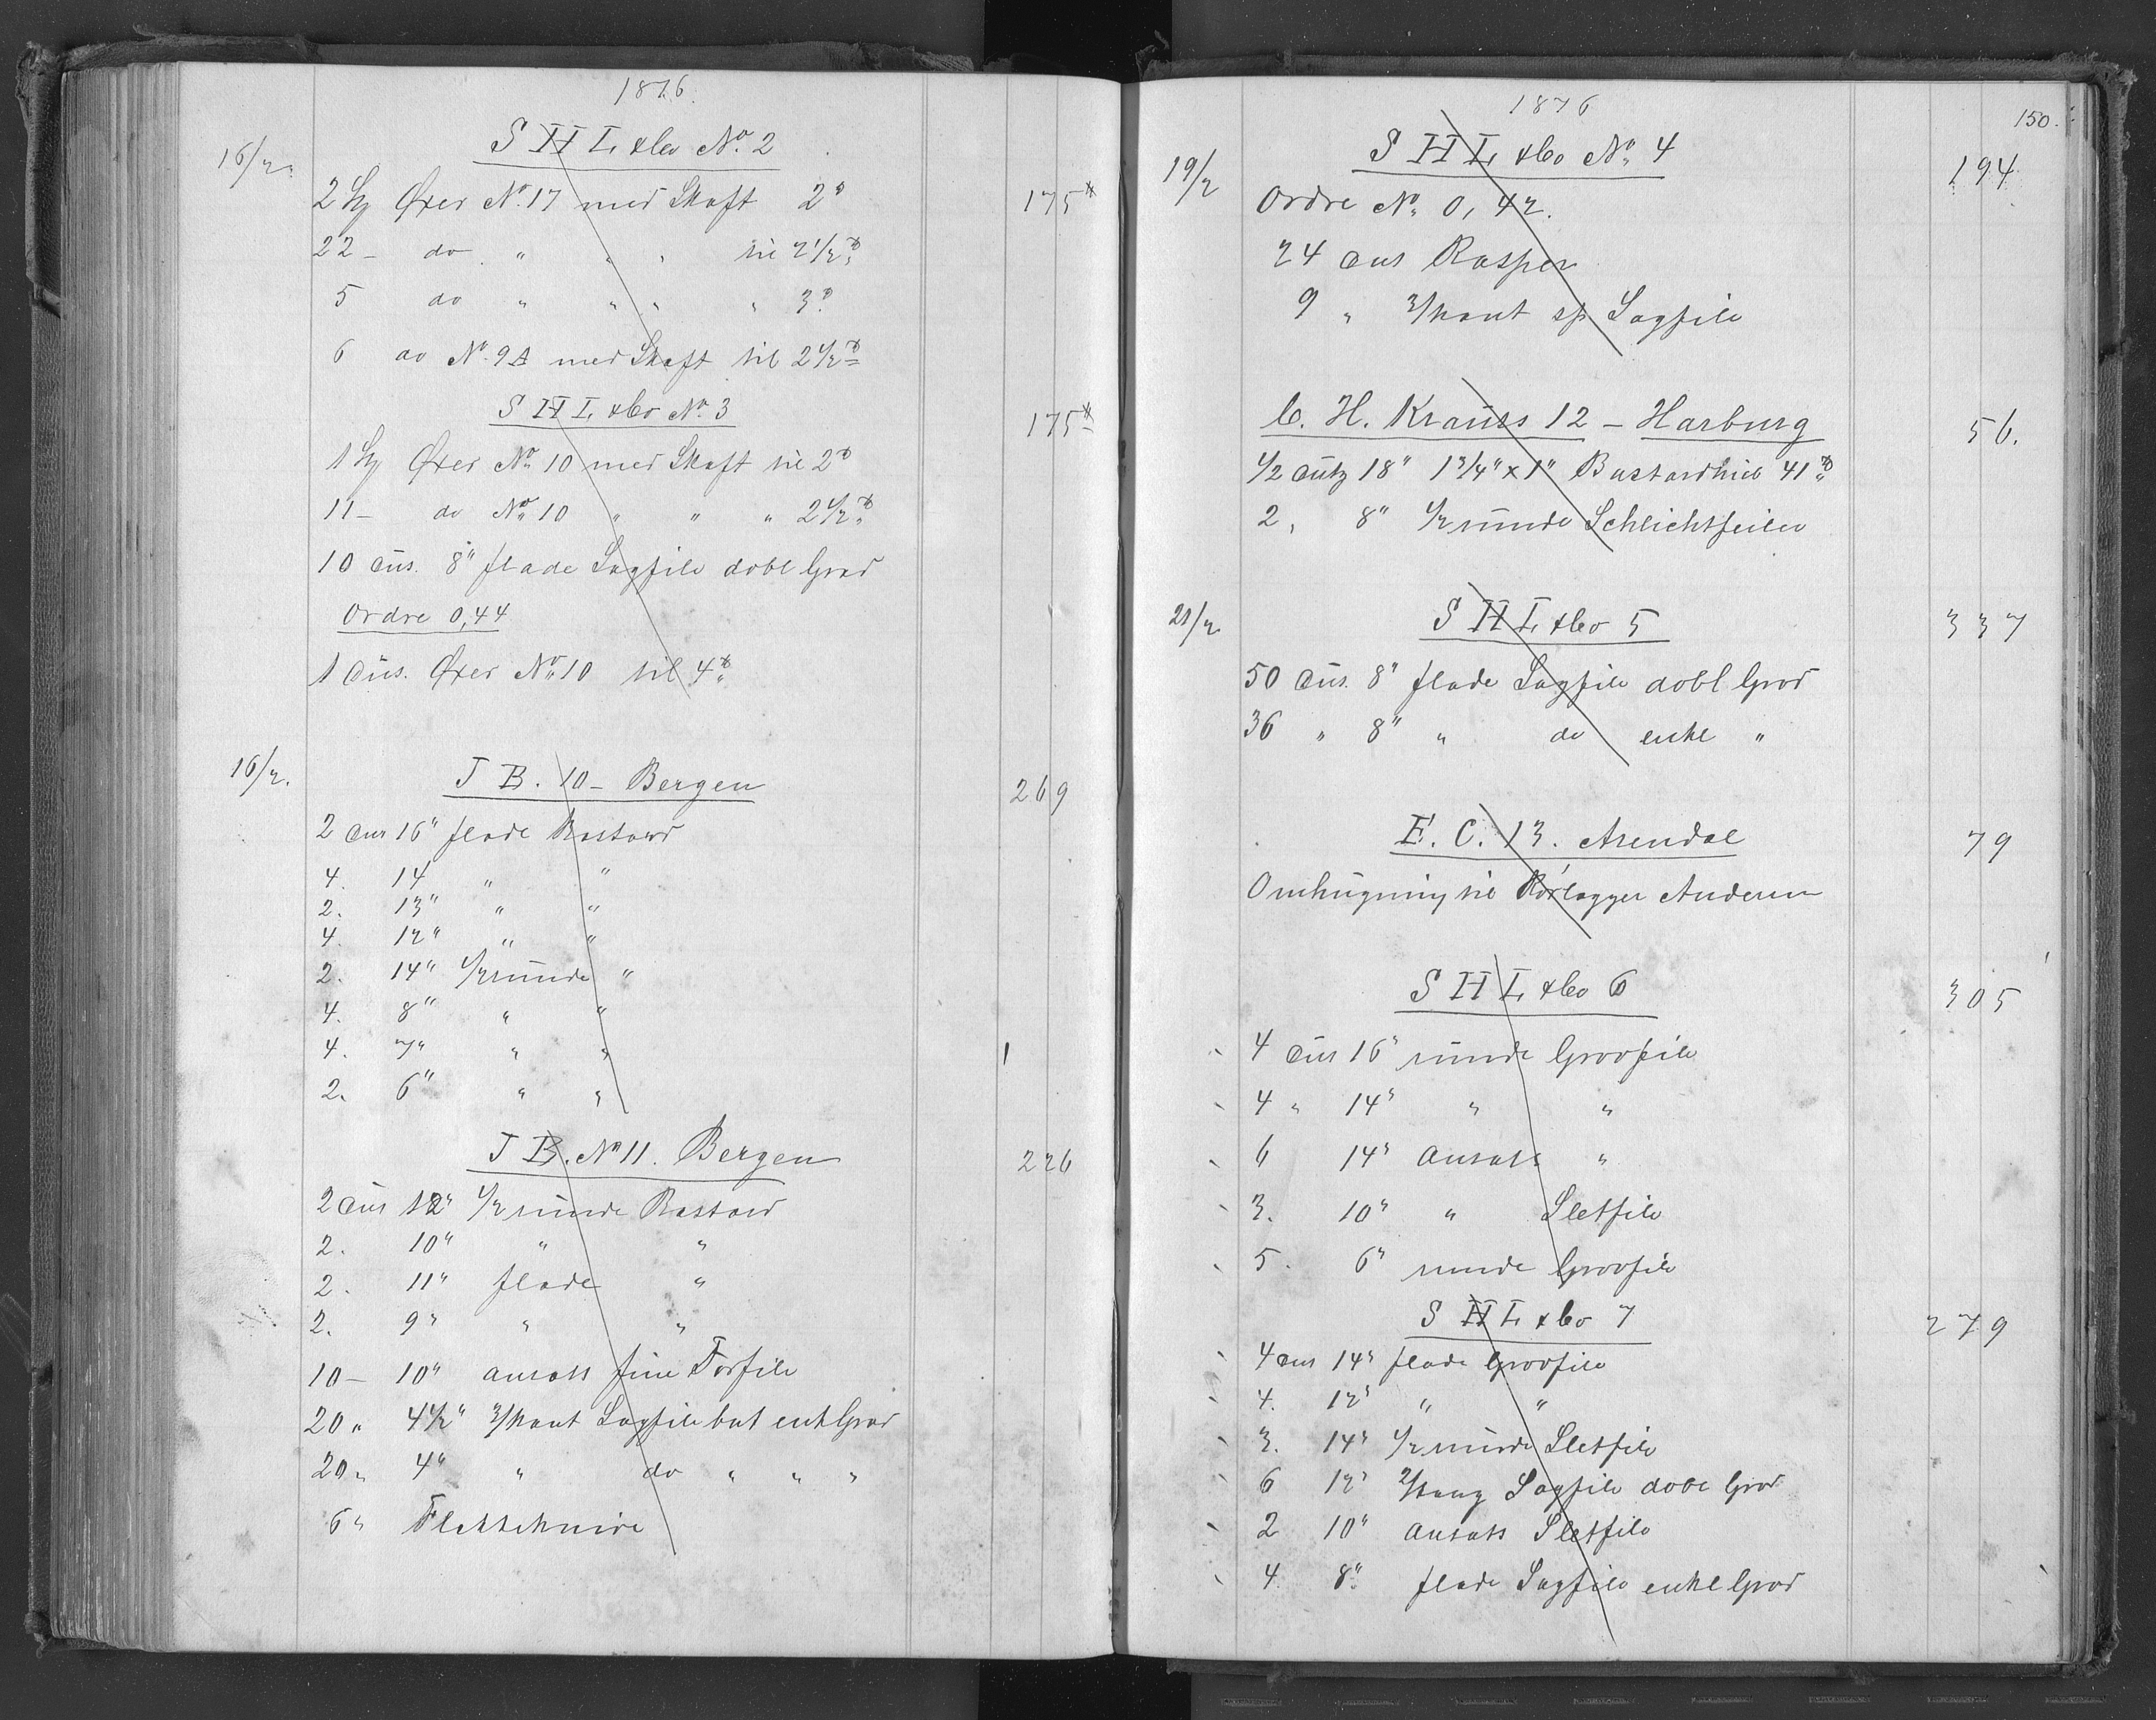 1876.
S H L & Co No. 2
16/2.
2 Øxer No. 17 med Skaft 2 ℔
175 ℔
22 - do " " " til 2 1/2 ℔
5 do " " " " 3 ℔
6 do No. 9 A med Skaft til 2 1/2 ℔
S H L & Co No. 3
175 ℔
1 Øxer No. 10 med Skaft til 2 ℔
11 - do No. 10 " " " 2 1/2 ℔
10 Dus. 8" flade Sagfile dobl Grad
Ordre 0,44
1 Dus. Øxer No. 10 til 4 ℔
16/2.
J B. 10 - Bergen
269
2 Dus 16" flade Bastard
4. 14 " "
2. 13" " "
4. 12" " "
2. 14" 1/2 runde "
4. 8" " "
4. 7" " "
2. 6" " "
J B. No 11. Bergen
226
2 Dus 12" 1/2 runde Bastard
2. 10" " "
2. 11" flade "
2. 9" " "
10 - 10" ansats fine Forfile
20 " 4 1/2" 3/kant Sagfile but enk Grad
20 " 4" " do " " "
6 "
1876
150.
S H L & Co No. 4
19/2
194
Ordre No. 0,42.
24 Dus Rasper
9 " 3/kant sp Sagfile
C. H. Krauss 12 - Harburg
56.
1/2 Dutz 18" 1 3/4" x 1" Bastardhieb 41 ℔
2 , 8" 1/2 runde Schlichtfeilen
21/2
S H L & Co 5
337
50 Dus. 8" flade Sagfile dobl Grad
36 " 8" " do enkl "
E. C. 13. Arendal
79
Omhugning til Rørlægger Andersen
S H L & Co 6
305
4 Dus 16" runde Grovfile
4 " 14" " "
6 14" Ansats "
3. 10" " Sletfile
5. 6" runde Grovfile
S H L & Co 7
279
4 Dus 14" flade Grovfile
4. 12" " "
3. 14" 1/2 runde Sletfile
6 12" Sagfile dobl Grad
2 10" Ansats Sletfile
4 8" flade Sagfile enkl Grad